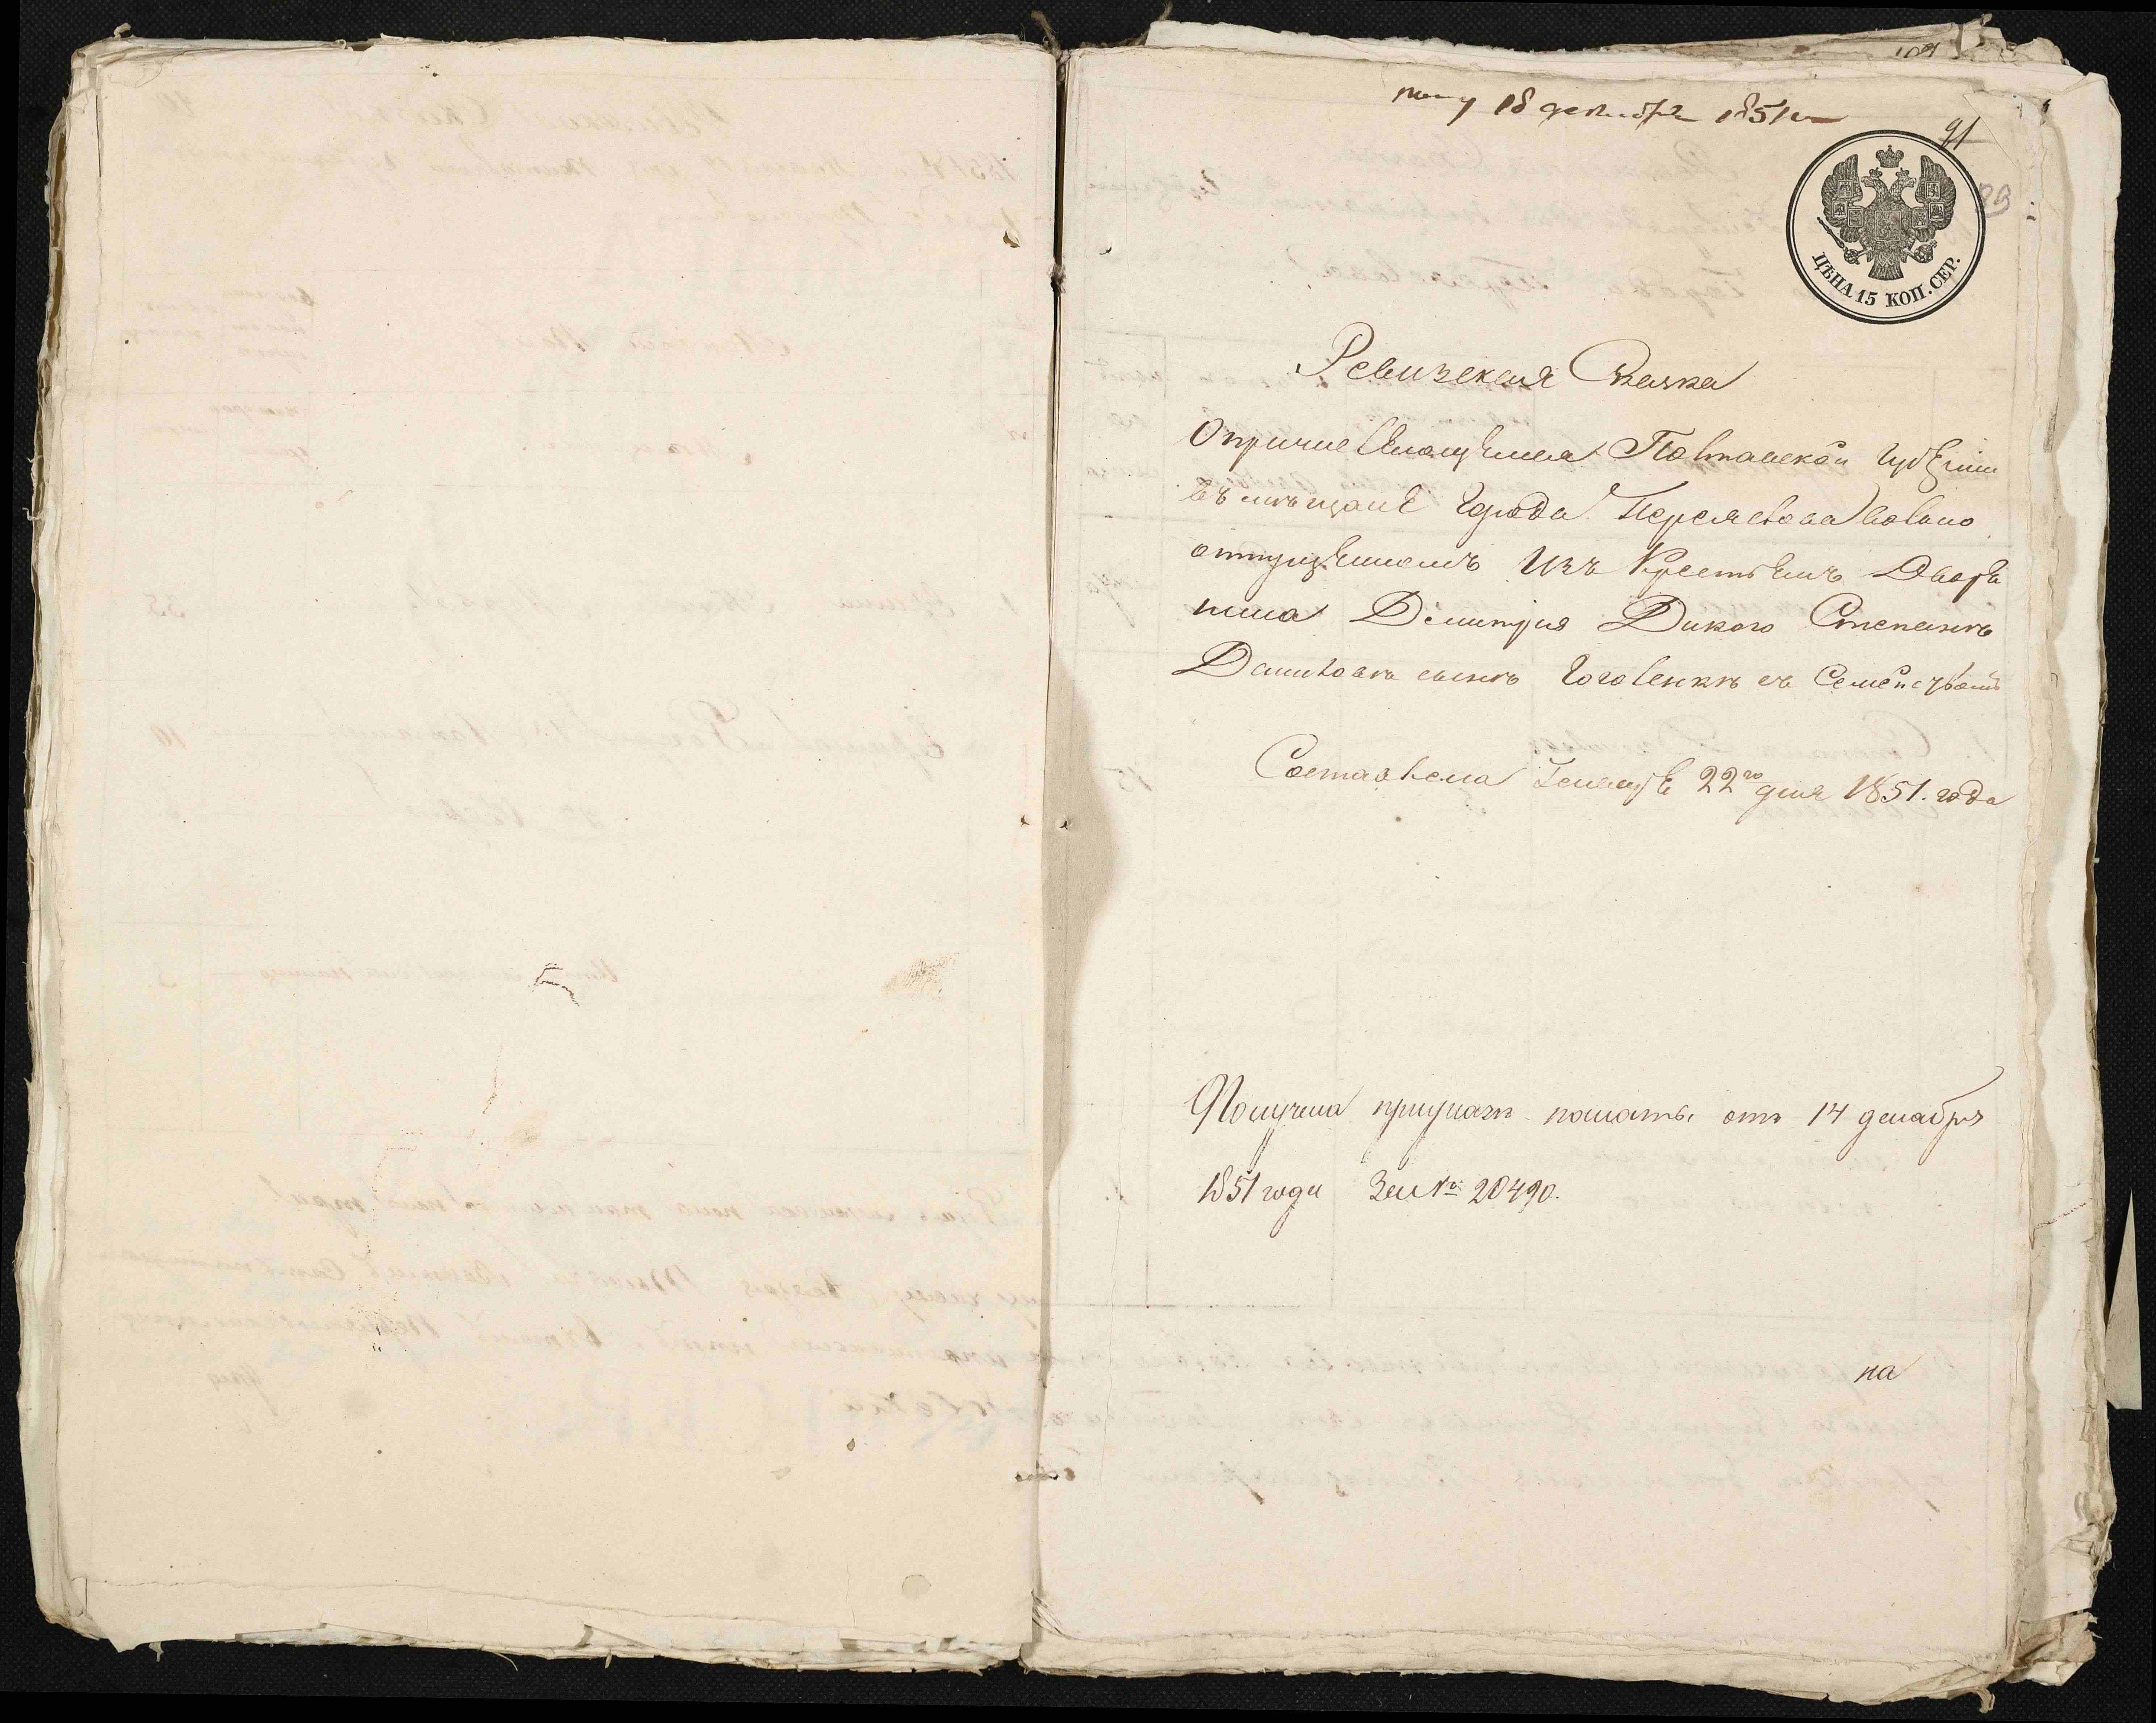 18 декабря 1851
91
ЦѢНА 15 КОП. СЕР.
Ревизская Сказка
О причисленіи Полтавской Губерніи
въ мѣщане Города Переяслава вольно
отпущенномъ Изъ Крестьянъ Дворя
нина Демитрия Дикого Степанъ
Даниловъ сынъ съ Семействомъ
Составлена Генваря 22го дня 1851. года
Получена при указѣ палаты отъ 14 декабря
1851 года За № 20490.
на